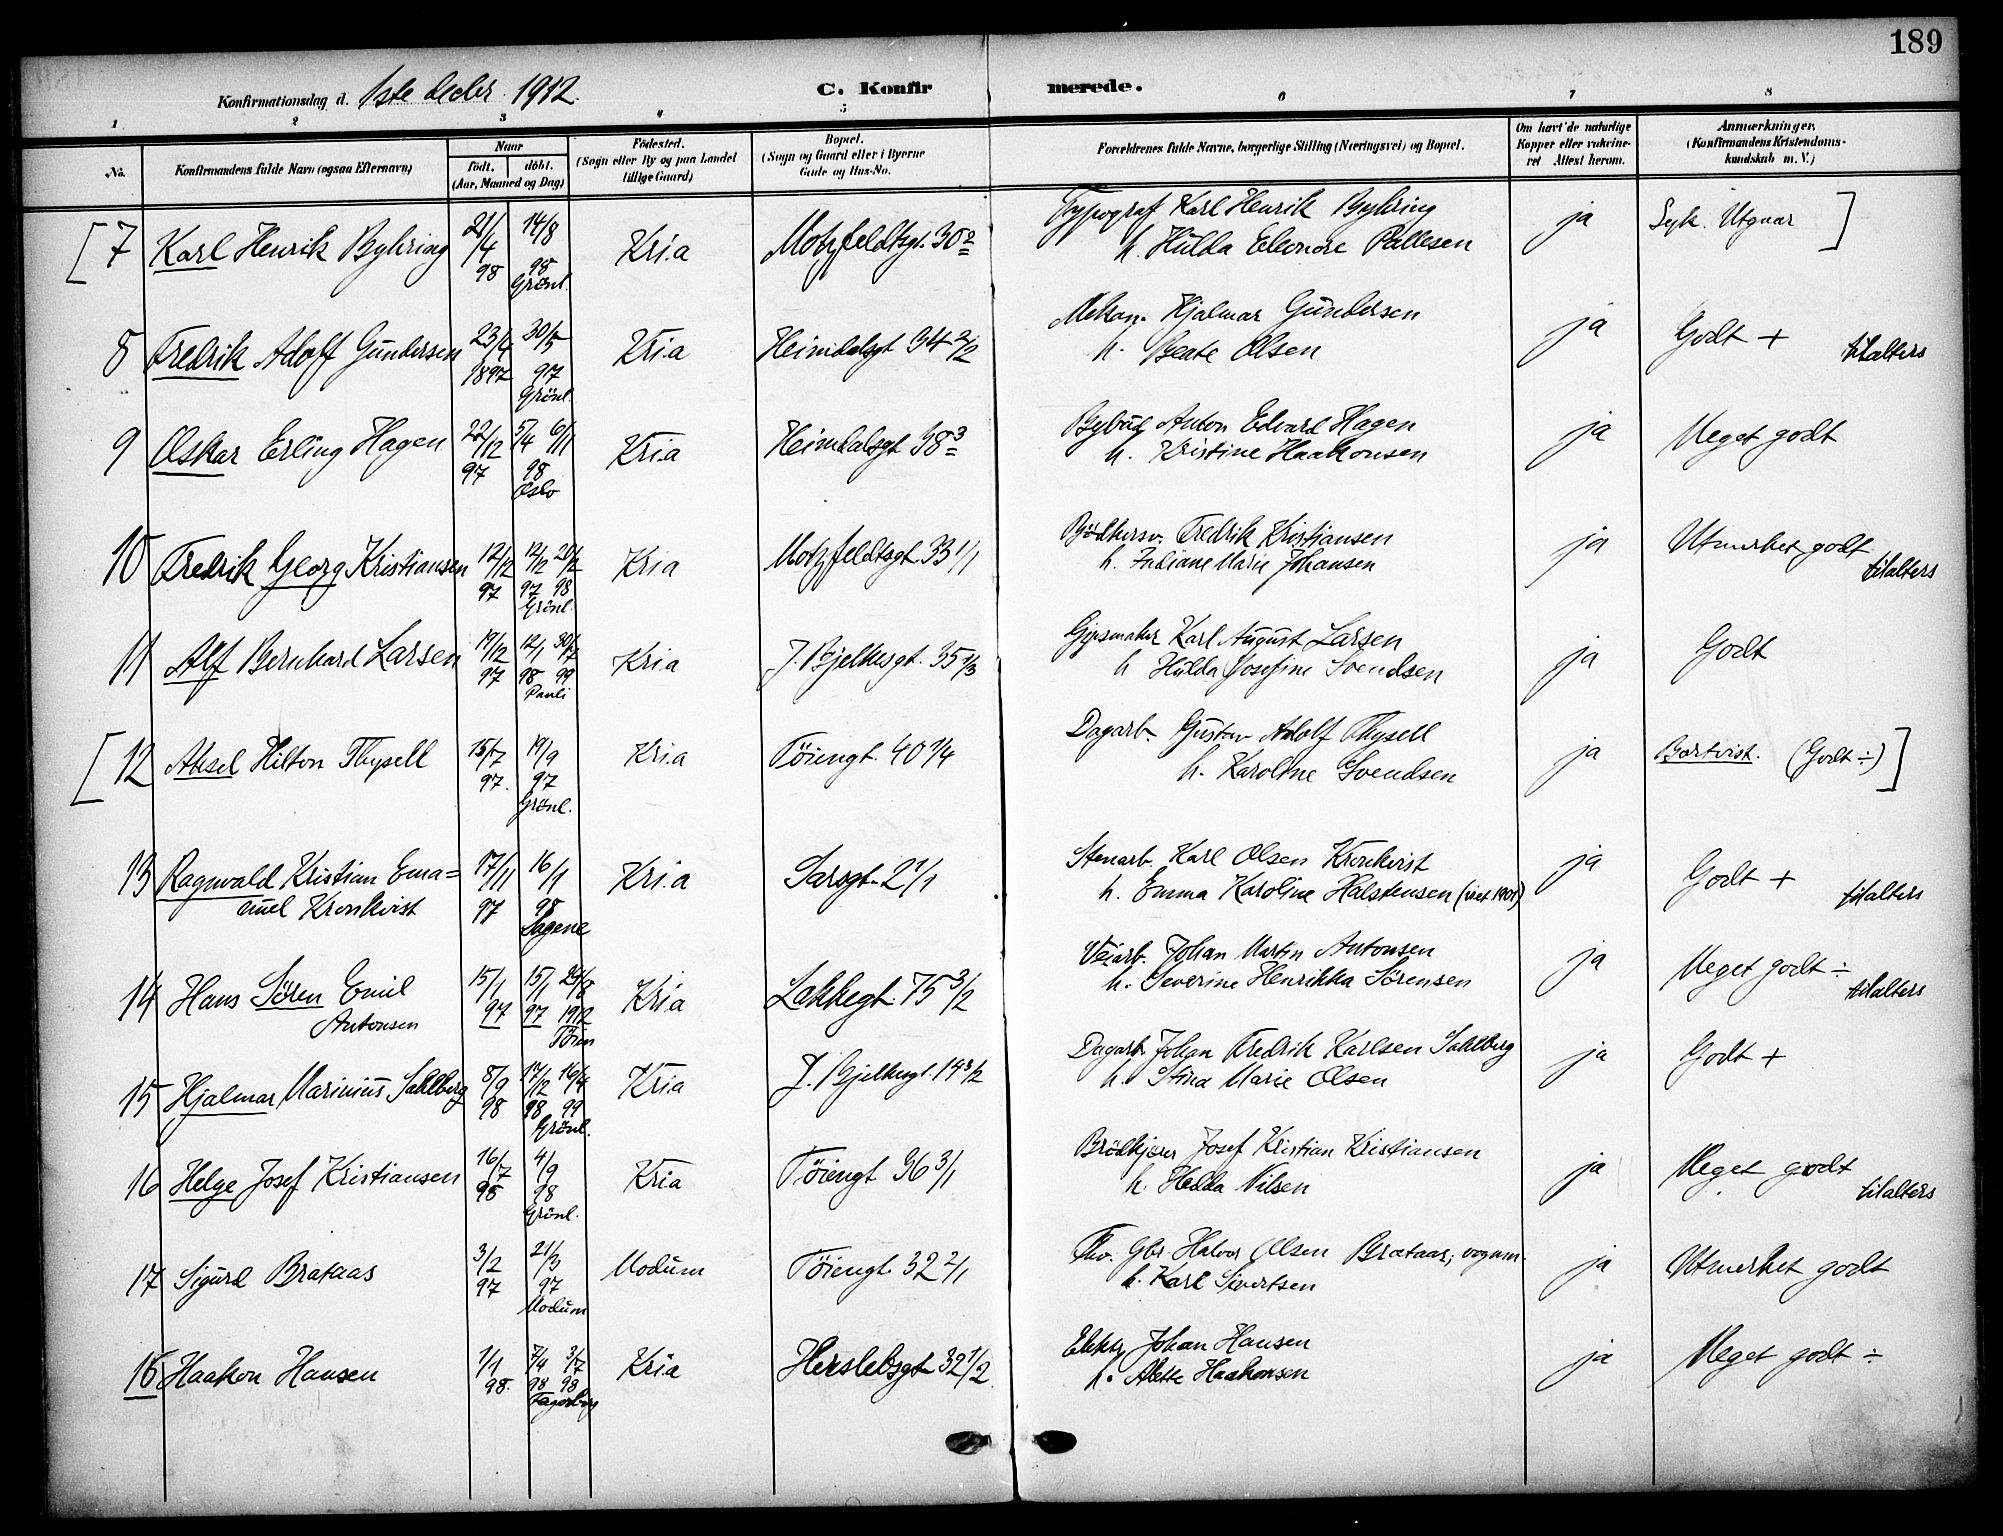 189
Konfirmationsdag d. 1ste decbr. 1912.
C. Konfirmerede.
1 2 3 4 5 6 7 8
No.
Konfirmandens fulde Navn (ogsaa Efternavn)
Naar
født. døbt.
(Aar, Maaned og Dag)
Fødested.
(Sogn eller By og paa Landet
tillige Gaard)
Bopæl.
(Sogn og Gaard eller i Byerne
Gade og Hus-No.
Forældrenes fulde Navne, borgerlige Stilling (Næringsvei) og Bopæl.
Om havt de naturlige
Kopper eller vakcine-
ret Attest herom.
Anmærkninger.
(Konfirmandens Kristendoms-
kundskab m. V.)
[7 Karl Henrik Byhring 21/4 98 14/8 98 Grønl. Kria Motzfeldtsgt. 30 2 Typograf Karl Henrik Byhring
h. Hulda Eleonore Pallesen ja Syk. Utgaar ]
8 Fredrik Adolf Gundersen 23/4 1897 30/5 97 Grønl. Kria Heimdalsgt 34 2/2 Mekan. Hjalmar Gundersen
h. Beate Olsen ja Godt + tilalters
9 Oskar Erling Hagen 22/12 97 5/4 6/11 98 Oslo Kria Heimdalsgt 38 3 Bybud Anton Edvard Hagen
h. Kristine Haakonsen ja Meget godt
10 Fredrik Georg Kristiansen 12/12 97 12/12 97 20/2 98 Grønl. Kria Motzfeldtsgt 33 1/1 Bødkersv. Fredrik Kristiansen
h. Juliane Marie Johansen ja Utmerket godt tilalters
11 Alf Bernhard Larsen 19/12 97 12/1 98 30/7 99 Pauli Kria J. Bjelkesgt. 35 1/3 Gjipsmaker Karl August Larsen
h Hulda Josefine Svendsen ja Godt
[12 Aksel Hilton Thysell 15/7 97. 19/9 97 Grønl. Kria Töiengt. 40 1/4 Dagarb. Gustav Adolf Thysell
h. Karoline Svendsen ja Bortvist. (Godt ÷) ]
13 Ragnvald Kristian Ema=
nuel Kronkvist 17/11 97 16/1 98 Sagene Kria Sarsgt. 2 1/1 Stenarb. Karl Olsen Kronkvist
h. Emma Karoline Halstensen ja Godt + tilalters
14 Hans Sören Emil
Antonsen 15/1 97 15/1 97 24/8 1912 Töien Kria Lakkegt. 75 3/2 Veiarb. Johan Martin Antonsen
h. Severine Henrikka Sörensen ja Meget godt ÷ tilalters
15 Hjalmar Marinius Sahlberg 8/9 98 17/12 98 16/4 99 Grønl. Kria J. Bjelkesgt. 19 3/2 Dagarb. Johan Fredrik Karlsen Sahlberg
h. Stina Marie Olsen ja Godt +
16 Helge Josef Kristiansen 16/7 98 4/9 98 Grønl. Kria Töiengt 36 3/1 Brödkjører Josef Kristian Kristiansen
h. Hedda Nilsen ja Meget godt tilalters
17 Sigurd Brataas 3/2 97 21/3 97 Modum Modum Töiengt. 32 2/1 Gbr. Halvor Olsen Brataas; vognm.
h. Karl Sivertsen ja Utmerket godt
18 Haakon Hansen 1/1 98. 7/4 98 3/7 98 Fagerborg Kria Herslebsgt 32 1/2. Johan Hansen
h. Alette Haakonsen ja Meget godt ÷